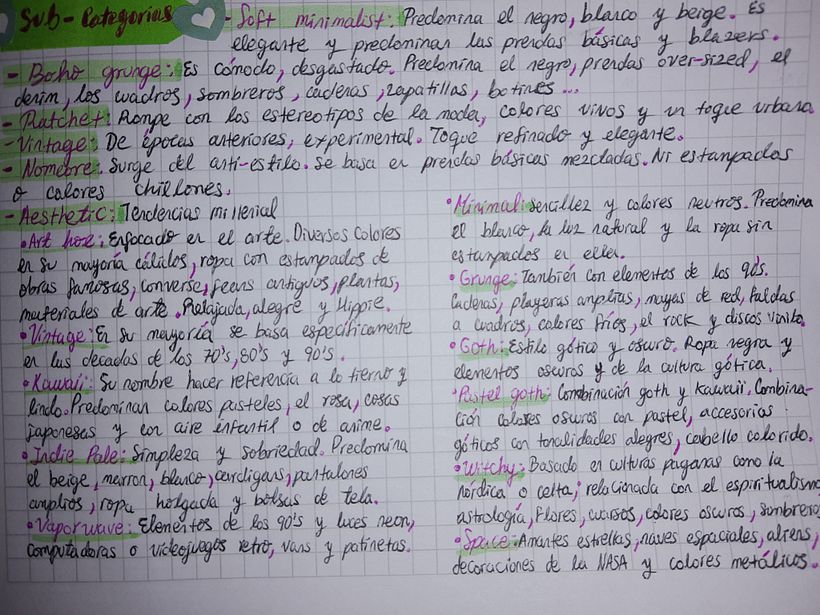 Sub-Categorias
- Soft minimalist: Predomina el negro, blanco y beige. Es
elegante y predominan las prendas básicas y blazers.
- Boho grunge: Es cómodo, desgastado. Predomina el negro, prendas over-sized, el
denim, los cuadros, sombreros, cadenas, zapatillas, botines...
- Ratchet: Rompe con los estereotipos de la moda, colores vivos y un toque urbano
- Vintage: De épocas anteriores, experimental. Toque refinado y elegante.
- Nomcore: Surge del anti-estilo. Se basa en prendas básicas mezcladas. Ni estanpados
o colores chillones.
- Aesthetic: Tendencias millenial
• Art hoe: Enfocado en el arte. Diversos colores
en su mayoría cálidos, ropa con estanpados de
obras famosas, converse, jeans antiguos, plantas,
materiales de arte. Relajada, alegre y Hippie.
• Vintage: En su mayoría se basa específicamente
en las decadas de los 70's, 80's y 90's.
• Kawaii: Su nombre hacer referencia a lo tierno y
lindo. Predominan colores pasteles, el rosa, cosas
japonesas y con aire infantil o de anime.
• Indie Pale: Simpleza y sobriedad. Predomina
el beige, marron, blanco, cardigans, pantalones
amplios, ropa holgada y bolsas de tela.
• Vaporwave: Elementos de los 90's y luces neon,
computadoras o videojuegos retro, vans y patinetas.
• Minimal: sencillez y colores neutros. Predomina
el blanco, la luz natural y la ropa sin
estanpados en ella.
• Grunge: También con elementos de los 90's.
Cadenas, playeras amplias, mayas de red, faldas
a cuadros, colores fríos, el rock y discos vinilo.
• Goth: Estilo gótico y oscuro. Ropa negra y
elementos oscuros y de la cultura gótica.
• Pastel goth: Combinación goth y kawaii. Combina-
ción colores oscuros con pastel, accesorios
góticos con tonalidades alegres, cabello colorido.
• Witchy: Basado en culturas paganas como la
nórdica o celta; relacionada con el espiritualismo
astrología, flores, cuarsos, colores oscuros, sombreros
• Space: Amantes estrellas, naves espaciales, aliens,
decoraciones de la NASA y colores metálicos.